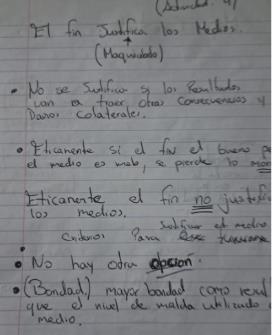 (Actividad. 4)
El fin Justifica los Medios.
(Maquiavelo)
• No se Justifica si los Resultados
van a traer otras Consecuencias y
Daños Colaterales.
• Eticamente si el fin es bueno pe
el medio es malo, se pierde lo mor
Eticamente el fin no justifi
los medios.
Justificar el medio
Criterios Para
• No hay otra opcion.
• (Bondad) mayor bondad como resul
que el nivel de maldad utilizado e
medio.